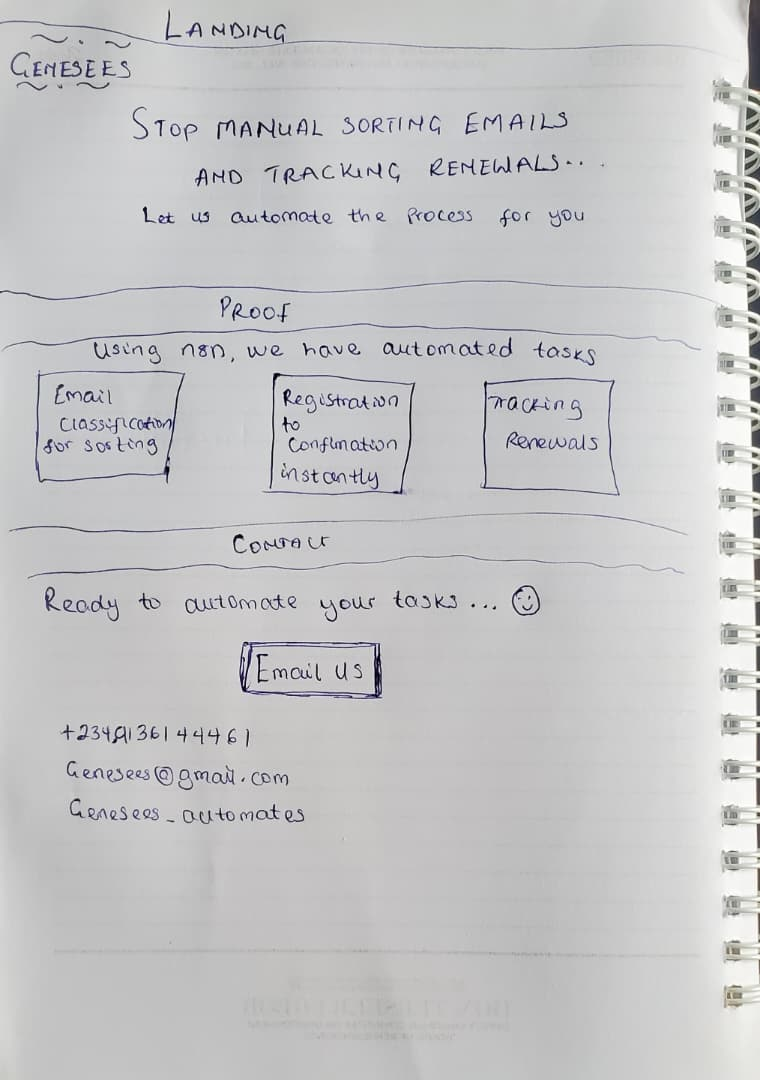 LANDING
GENESEES
STOP MANUAL SORTING EMAILS
AND TRACKING RENEWALS...
Let us automate the Process for you
PROOF
Using n8n, we have automated tasks
Email
Classification
for sorting
Registration
to
Confimation
instantly
Tracking
Renewals
CONTACT
Ready to automate your tasks... ☺
Email us
+2349136144461
Genesees@gmail.com
Genesees_automates